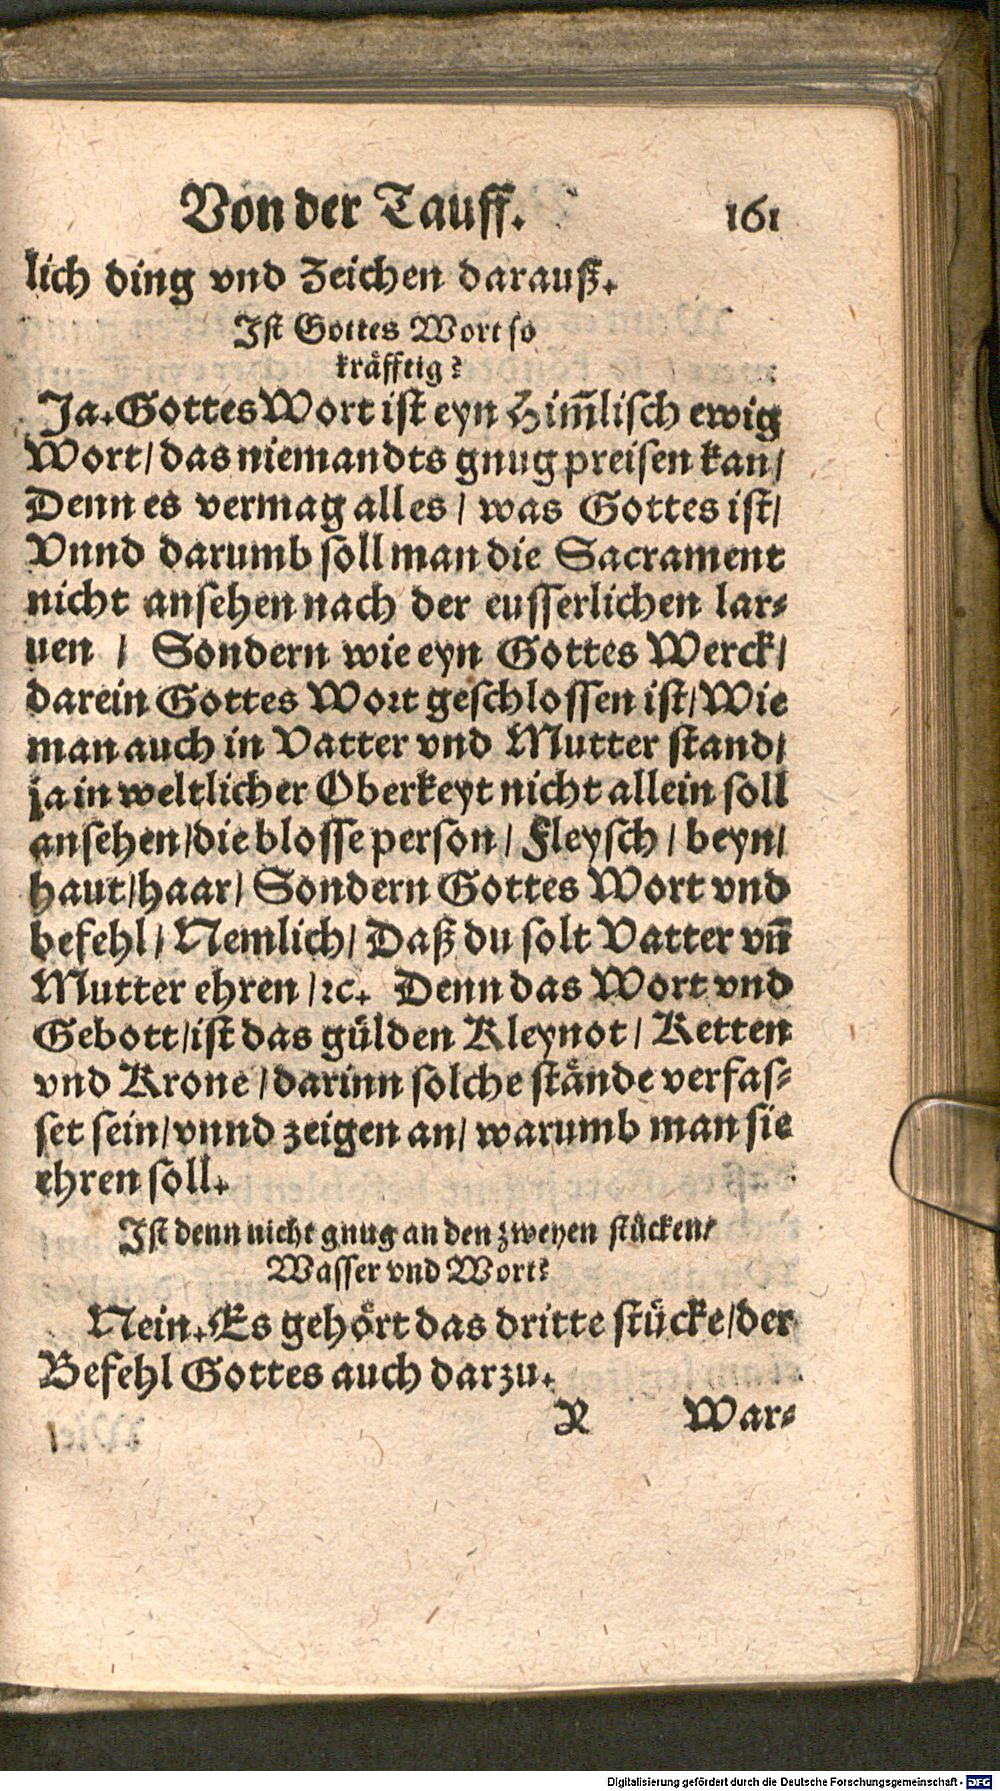 Von der Tauff. 161
lich ding vnd Zeichen darauß.
Ist Gottes Wort so
kräfftig?
Ja. Gottes Wort ist eyn Him̃lisch ewig
Wort / das niemandts gnug preisen kan /
Denn es vermag alles / was Gottes ist /
Vnnd darumb soll man die Sacrament
nicht ansehen nach der eusserlichen lar⸗
uen / Sondern wie eyn Gottes Werck /
darein Gottes Wort geschlossen ist / Wie
man auch in Vatter vnd Mutter stand /
ja in weltlicher Oberkeyt nicht allein soll
ansehen / die blosse person / Fleysch / beyn /
haut / haar / Sondern Gottes Wort vnd
befehl / Nemlich / Daß du solt Vatter vn̄
Mutter ehren / ꝛc. Denn das Wort vnd
Gebott / ist das gülden Kleynot / Ketten
vnd Krone / darinn solche stände verfas⸗
set sein / vnnd zeigen an / warumb man sie
ehren soll.
Ist denn nicht gnug an den zweyen stücken /
Wasser vnd Wort?
Nein. Es gehört das dritte stücke / der
Befehl Gottes auch darzu.
R War⸗
Digitalisierung gefördert durch die Deutsche Forschungsgemeinschaft - DFG